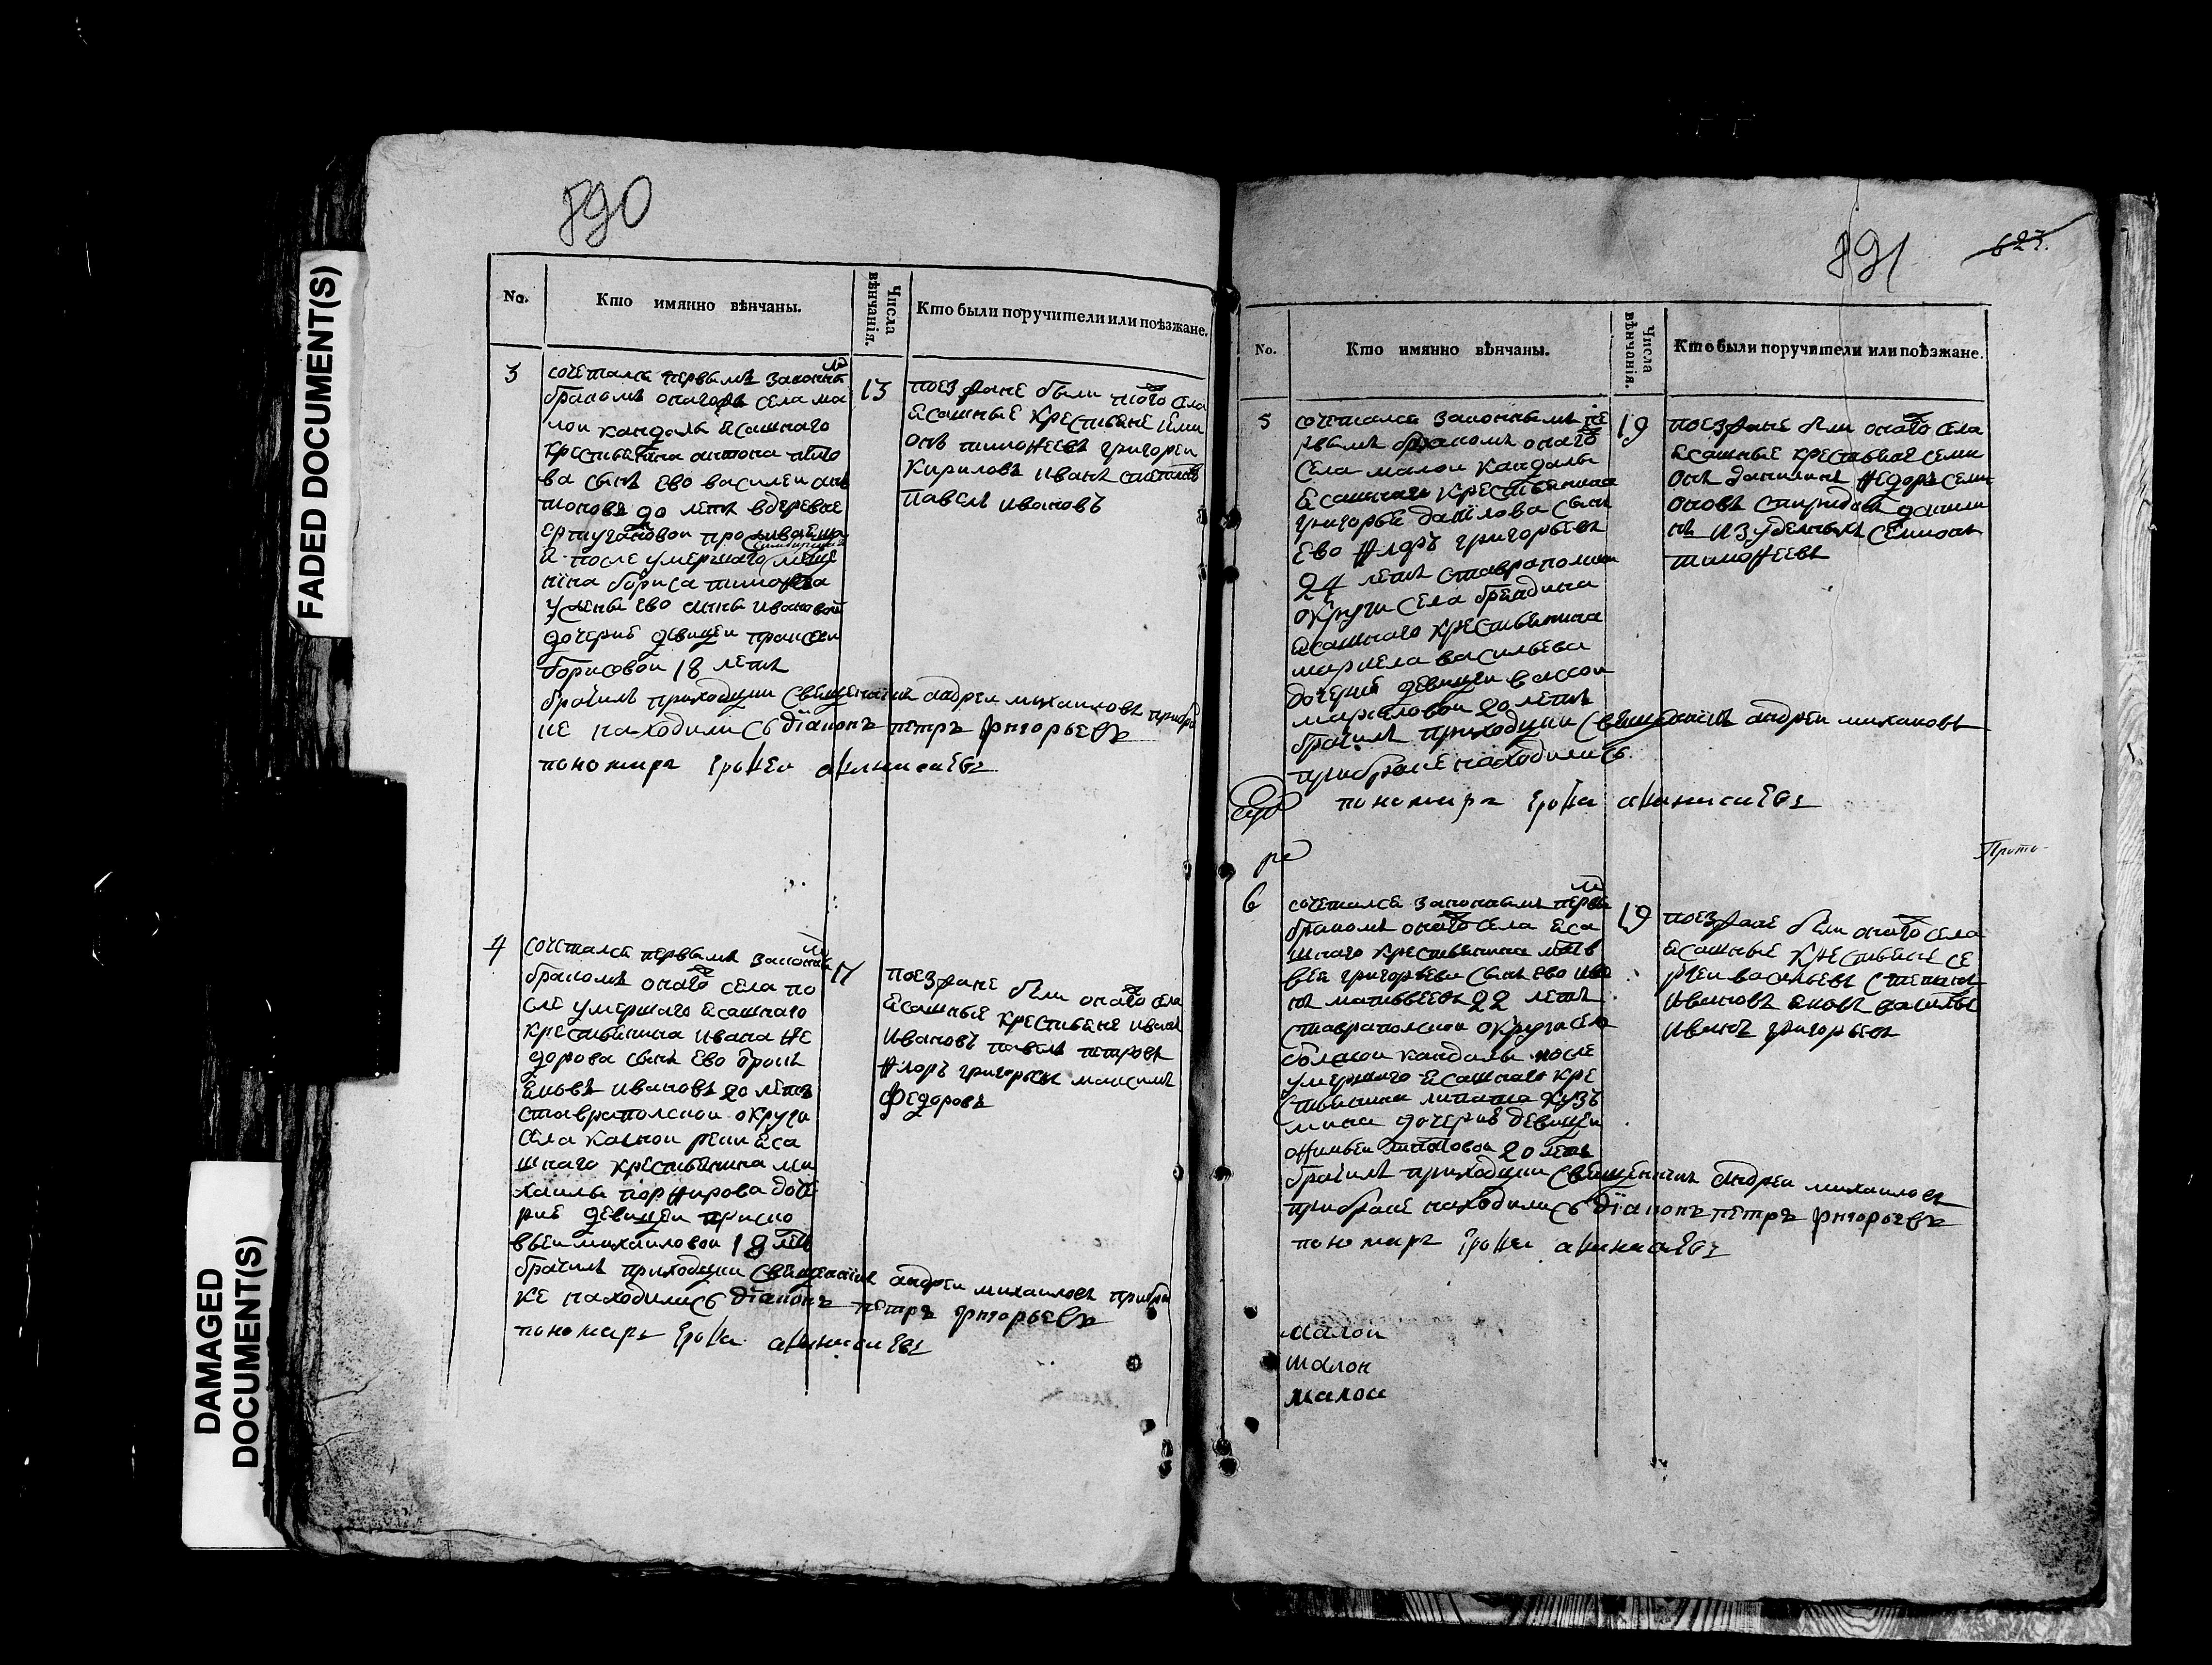 FADED DOCUMENT(S)
DAMAGED DOCUMENT(S)
890
No.
Кто имянно вѣнчаны.
Числа вѣнчанія.
Кто были поручители или поѣзжане.
3
сочетался первымъ законны м
бракомъ онагожъ села ма
лои кандалы ясашнаго
крестьянина антона
ва сынъ ево василеи ан
тоновъ 20 летъ вдеревне
ертугановои проживаеша
и после умершаго
нина бориса тимофеева
у жены ево анны ивановои
дочерию девицеи прасков
борисовои 18 летъ
13
поезжане были тогожъ села
ясашные крестьяне семи
онъ тимофеевъ григореи
кириловъ иванъ степанов
павелъ ивановъ
брачилъ приходцки священникъ андреи михаиловъ прибра
ке находились диаконъ петръ григорьевъ
пономарь ерофеи
4
сочетался первымъ законны м
бракомъ онагожъ села по
сле умершаго ясашнаго
крестьянина ивана фе
дорова сынъ ево
яковъ ивановъ 20 летъ
ставрополскои округи
села
шнаго крестьянина ми
хаилы порфирова доче
рию девицеи праско
вьеи михаиловои 18 летъ
17
поезжане были онагожъ села
ясашные крестьяне иванъ
ивановъ павелъ петровъ
флоръ григорьевъ максимъ
федоровъ
брачилъ приходцки священникъ андреи михаиловъ прибра
ке находились диаконъ петръ григорьевъ
пономарь ерофеи
891
627.
No.
Кто имянно вѣнчаны.
Числа вѣнчанія.
Кто были поручители или поѣзжане.
5
сочетался законнымъ пе
рвымъ бракомъ онагожъ
села малои кандалы
ясашнаго крестьянина
григорье данилова сынъ
ево флоръ григорьевъ
24 летъ ставрополскои
округи села бряндина
ясашнаго крестьянина
маркела васильева
дочерию девицеи
маркеловои 20 летъ
19
поезжане были онагожъ села
ясашные крестьяне семи
онъ данилинъ федоръ семи
оновъ спиридонъ данили
нъ изуделныхъ семионъ
тимофеевъ
брачилъ приходцки священникъ андреи михаиловъ
прибраке находились
пономарь ерофеи
6
сочетался законнымъ первы м
бракомъ онагожъ села яса
шнаго крестьянина матв
вея григорьева сынъ ево ива
нъ матвеевъ 22 летъ
ставрополскои округи села
болшои кандалы после
умершаго ясашнаго кре
стьянина липата кузь
мина дочерию девицеи
липатовои 20 летъ
19
поезжане были онагожъ села
ясашные крестьяне се
ргеи васильевъ степанъ
ивановъ яковъ василье
иванъ григорьевъ
брачилъ приходцки священникъ андреи михаиловъ
прибраке находились диаконъ петръ григорьевъ
пономарь ерофеи
малои
малои
малои
Прото-